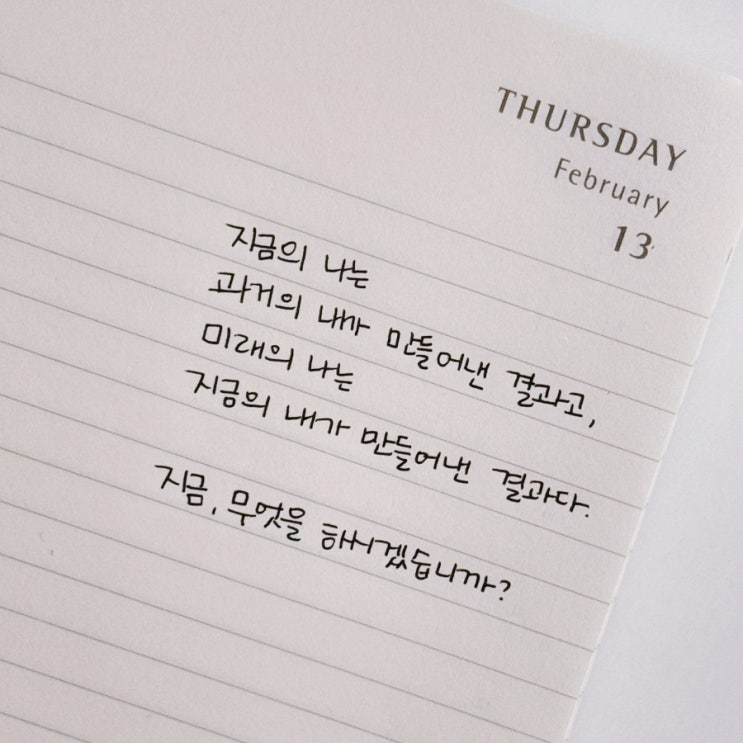 THURSDAY
February
13
지금의 나는
과거의 내가 만들어낸 결과고,
미래의 나는
지금의 내가 만들어낸 결과다.
지금, 무엇을 하시겠습니까?